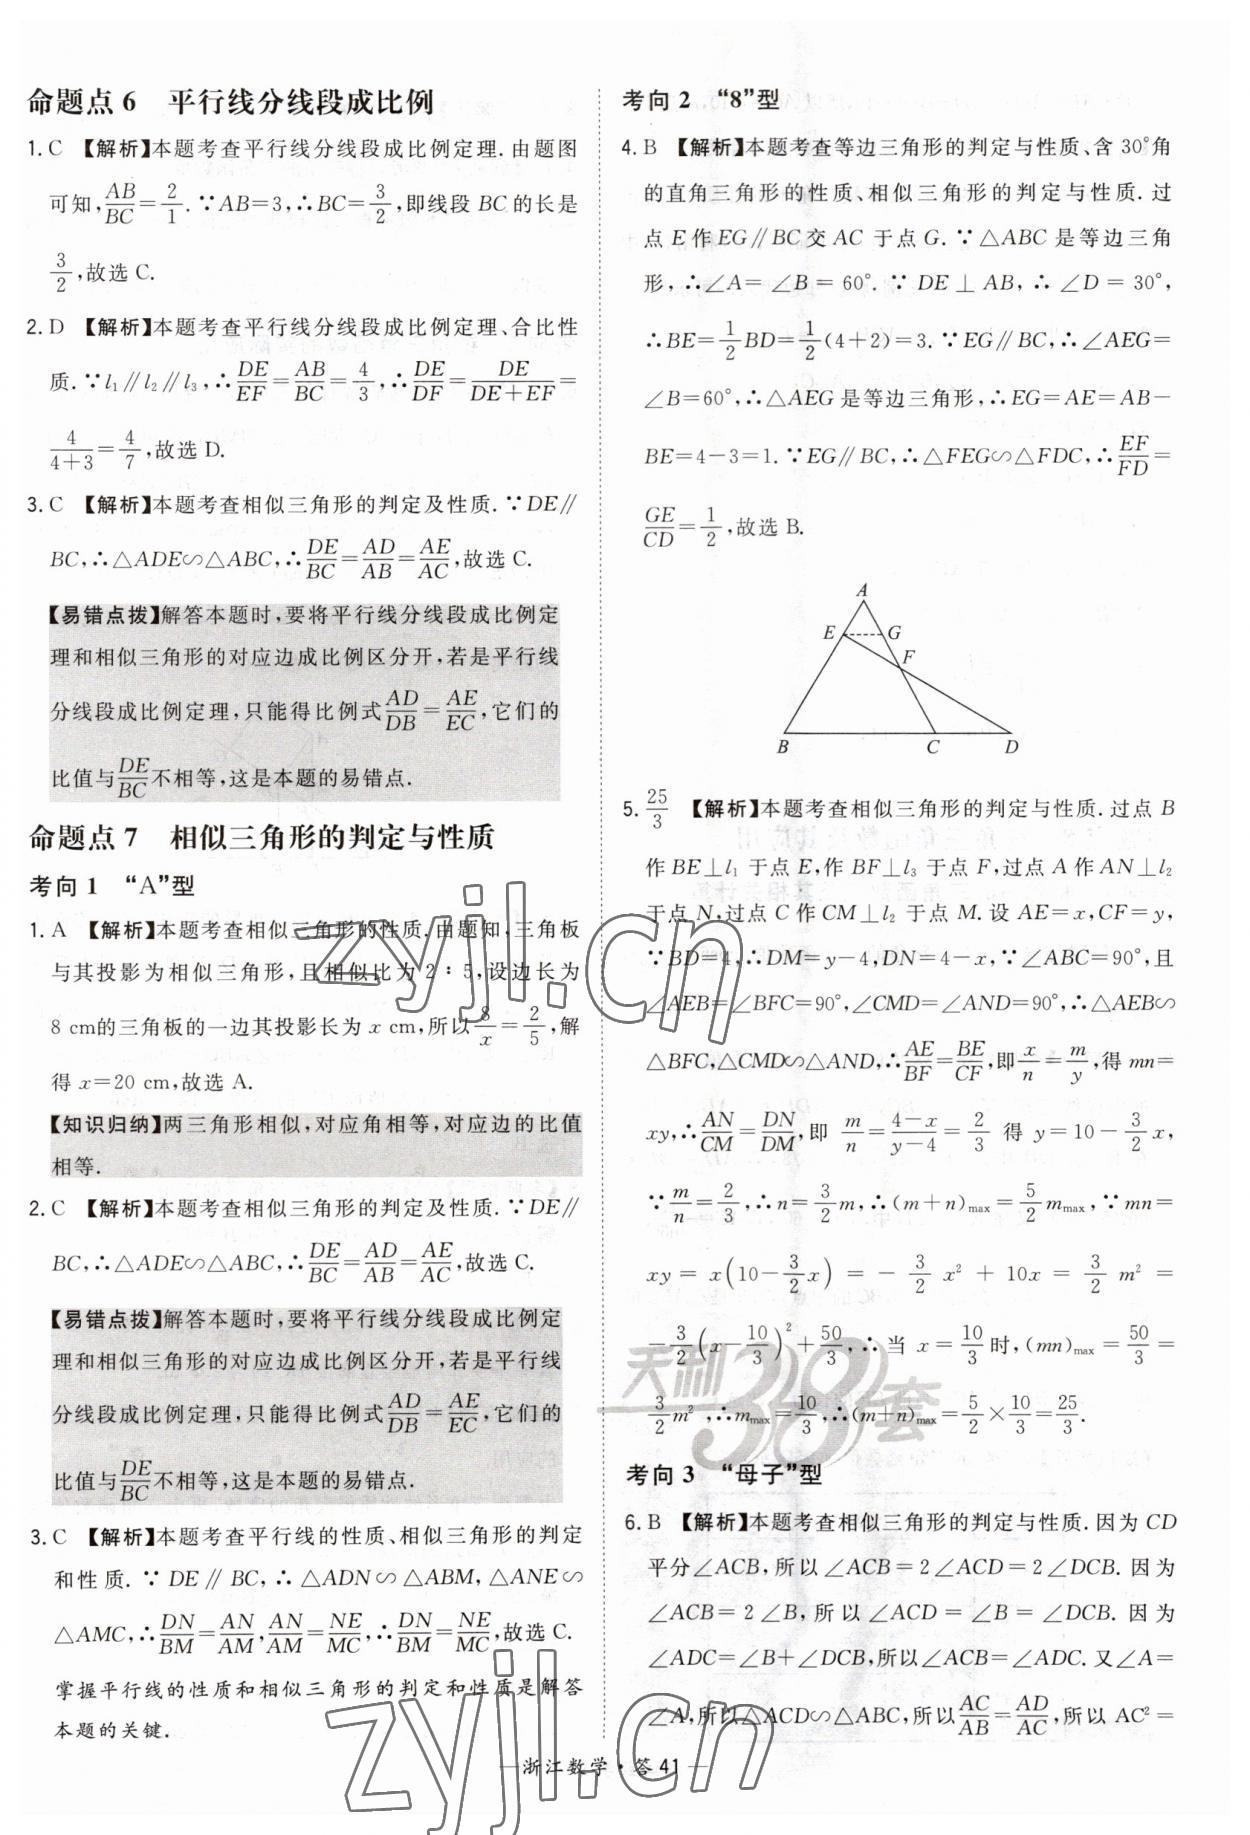 命题点 6 平行线分线段成比例
1. C 【解析】本题考查平行线分线段成比例定理.由题图
可知,AB/BC=2/1.∵AB=3,∴BC=3/2,即线段 BC 的长是
3/2,故选 C.
2. D 【解析】本题考查平行线分线段成比例定理、合比性
质.∵l₁∥l₂∥l₃,∴DE/EF=AB/BC=4/3,∴DE/DF=DE/(DE+EF)=
4/(4+3)=4/7,故选 D.
3. C 【解析】本题考查相似三角形的判定及性质.∵DE∥
BC,∴△ADE∽△ABC,∴DE/BC=AD/AB=AE/AC,故选 C.
【易错点拨】解答本题时,要将平行线分线段成比例定
理和相似三角形的对应边成比例区分开,若是平行线
分线段成比例定理,只能得比例式AD/DB=AE/EC,它们的
比值与DE/BC不相等,这是本题的易错点.
命题点 7 相似三角形的判定与性质
考向 1 “A”型
1. A 【解析】本题考查相似三角形的性质.由题知,三角板
与其投影为相似三角形,且相似比为 2∶5,设边长为
8 cm的三角板的一边其投影长为 x cm,所以8/x=2/5,解
得 x=20 cm,故选 A.
【知识归纳】两三角形相似,对应角相等,对应边的比值
相等.
2. C 【解析】本题考查相似三角形的判定及性质.∵DE∥
BC,∴△ADE∽△ABC,∴DE/BC=AD/AB=AE/AC,故选 C.
【易错点拨】解答本题时,要将平行线分线段成比例定
理和相似三角形的对应边成比例区分开,若是平行线
分线段成比例定理,只能得比例式AD/DB=AE/EC,它们的
比值与DE/BC不相等,这是本题的易错点.
3. C 【解析】本题考查平行线的性质、相似三角形的判定
和性质.∵DE∥BC,∴△ADN∽△ABM,△ANE∽
△AMC,∴DN/BM=AN/AM,AN/AM=NE/MC,∴DN/BM=NE/MC,故选 C.
掌握平行线的性质和相似三角形的判定和性质是解答
本题的关键.
考向 2 “8”型
4. B 【解析】本题考查等边三角形的判定与性质、含 30°角
的直角三角形的性质、相似三角形的判定与性质.过
点 E 作 EG∥BC交 AC 于点 G.∵△ABC 是等边三角
形,∴∠A=∠B=60°.∵DE⊥AB,∴∠D=30°,
∴BE=1/2BD=1/2(4+2)=3.∵EG∥BC,∴∠AEG=
∠B=60°,∴△AEG 是等边三角形,∴EG=AE=AB-
BE=4-3=1.∵EG∥BC,∴△FEG∽△FDC,∴EF/FD=
GE/CD=1/2,故选 B.
A
E
G
F
B
C
D
5. 25/3 【解析】本题考查相似三角形的判定与性质.过点 B
作 BE⊥l₁ 于点 E,作 BF⊥l₃ 于点 F,过点 A 作 AN⊥l₂
于点 N,过点 C 作 CM⊥l₂ 于点 M.设 AE=x,CF=y,
∵BD=4,∴DM=y-4,DN=4-x,∵∠ABC=90°,且
∠AEB=∠BFC=90°,∠CMD=∠AND=90°,∴△AEB∽
△BFC,△CMD∽△AND,∴AE/BF=BE/CF,即x/n=m/y,得 mn=
xy,∴AN/CM=DN/DM,即 m/n=(4-x)/(y-4)=2/3 得 y=10-3/2x,
∵m/n=2/3,∴n=3/2m,∴(m+n)max=5/2mmax,∵mn=
xy=x(10-3/2x)=-3/2x²+10x=3/2m²=
-3/2(x-10/3)²+50/3,∴当 x=10/3时,(mn)max=50/3=
3/2m²,∴mmax=10/3,∴(m+n)max=5/2×10/3=25/3.
考向 3 “母子”型
6. B 【解析】本题考查相似三角形的判定与性质.因为 CD
平分∠ACB,所以∠ACB=2∠ACD=2∠DCB.因为
∠ACB=2∠B,所以∠ACD=∠B=∠DCB.因为
∠ADC=∠B+∠DCB,所以∠ACB=∠ADC.又∠A=
∠A,所以△ACD∽△ABC,所以AC/AB=AD/AC,所以 AC²=
—浙江数学·答 41—
zyjl.cn
zyjl.cn
天利38套